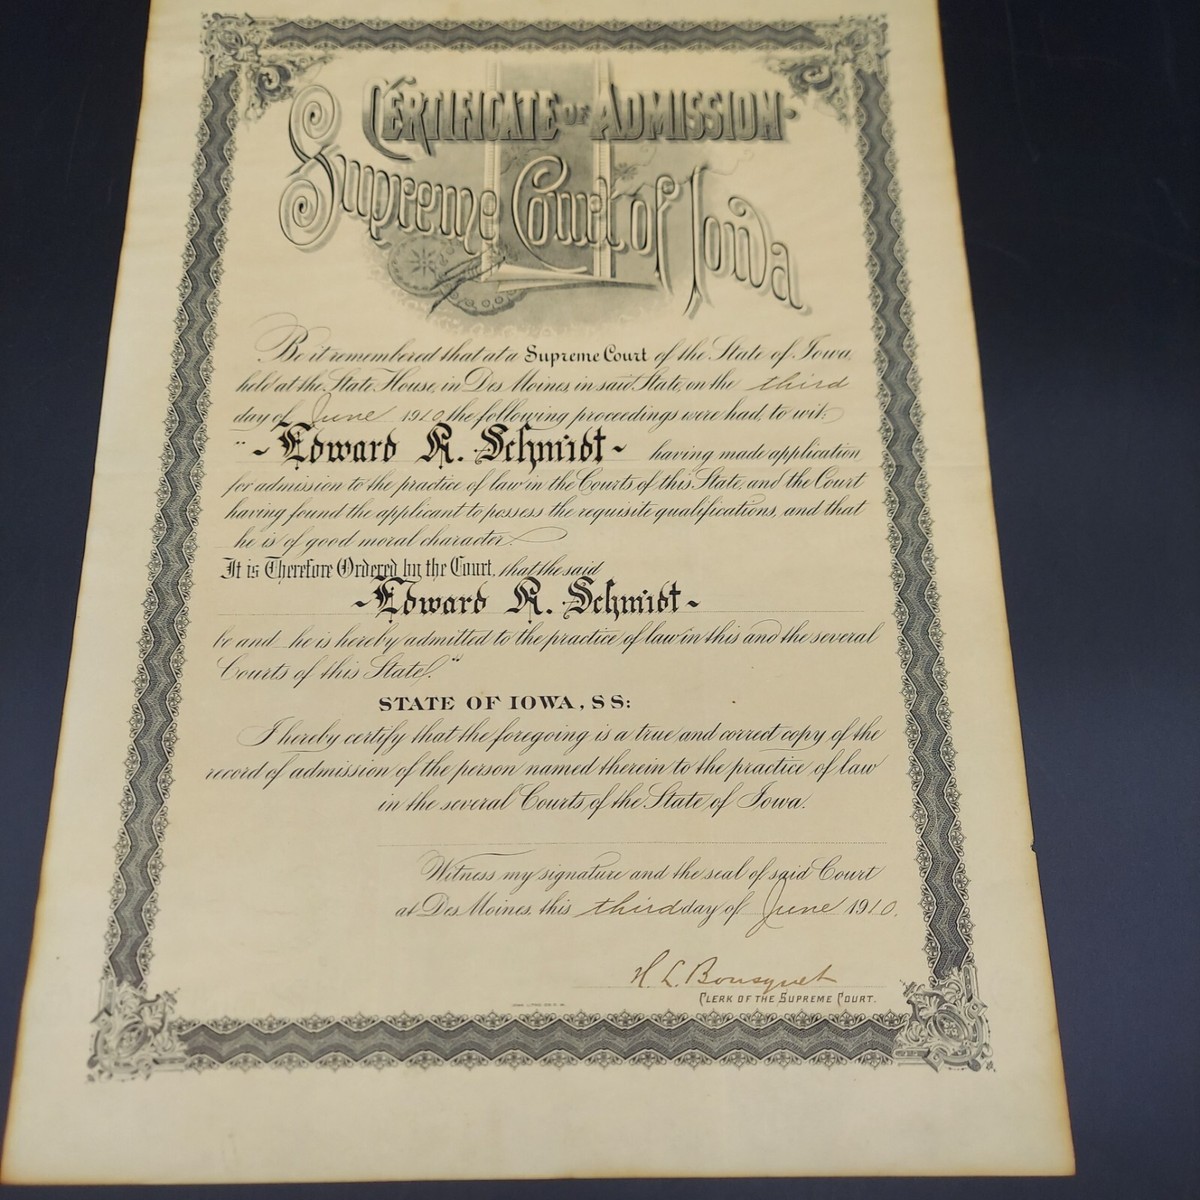 CERTIFICATE OF ADMISSION
Supreme Court of Iowa
Be it remembered that at a Supreme Court of the State of Iowa,
held at the State House, in Des Moines, in said State, on the third
day of June 1910, the following proceedings were had, to wit:
"~Edward R. Schmidt~ having made application
for admission to the practice of law in the Courts of this State, and the Court
having found the applicant to possess the requisite qualifications, and that
he is of good moral character.
It is Therefore Ordered by the Court, that the said
~Edward R. Schmidt~
be and he is hereby admitted to the practice of law in this and the several
Courts of this State."
STATE OF IOWA, SS:
I hereby certify that the foregoing is a true and correct copy of the
record of admission of the person named therein to the practice of law
in the several Courts of the State of Iowa.
Witness my signature and the seal of said Court
at Des Moines, this third day of June 1910.
H. L. Bousquet
CLERK OF THE SUPREME COURT.